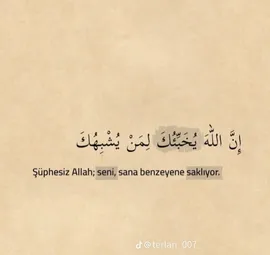 إِنَّ اللّٰهَ يُخَبِّئُكَ لِمَنْ يُشْبِهُكَ
Şüphesiz Allah; seni, sana benzeyene saklıyor.
@terlan_007